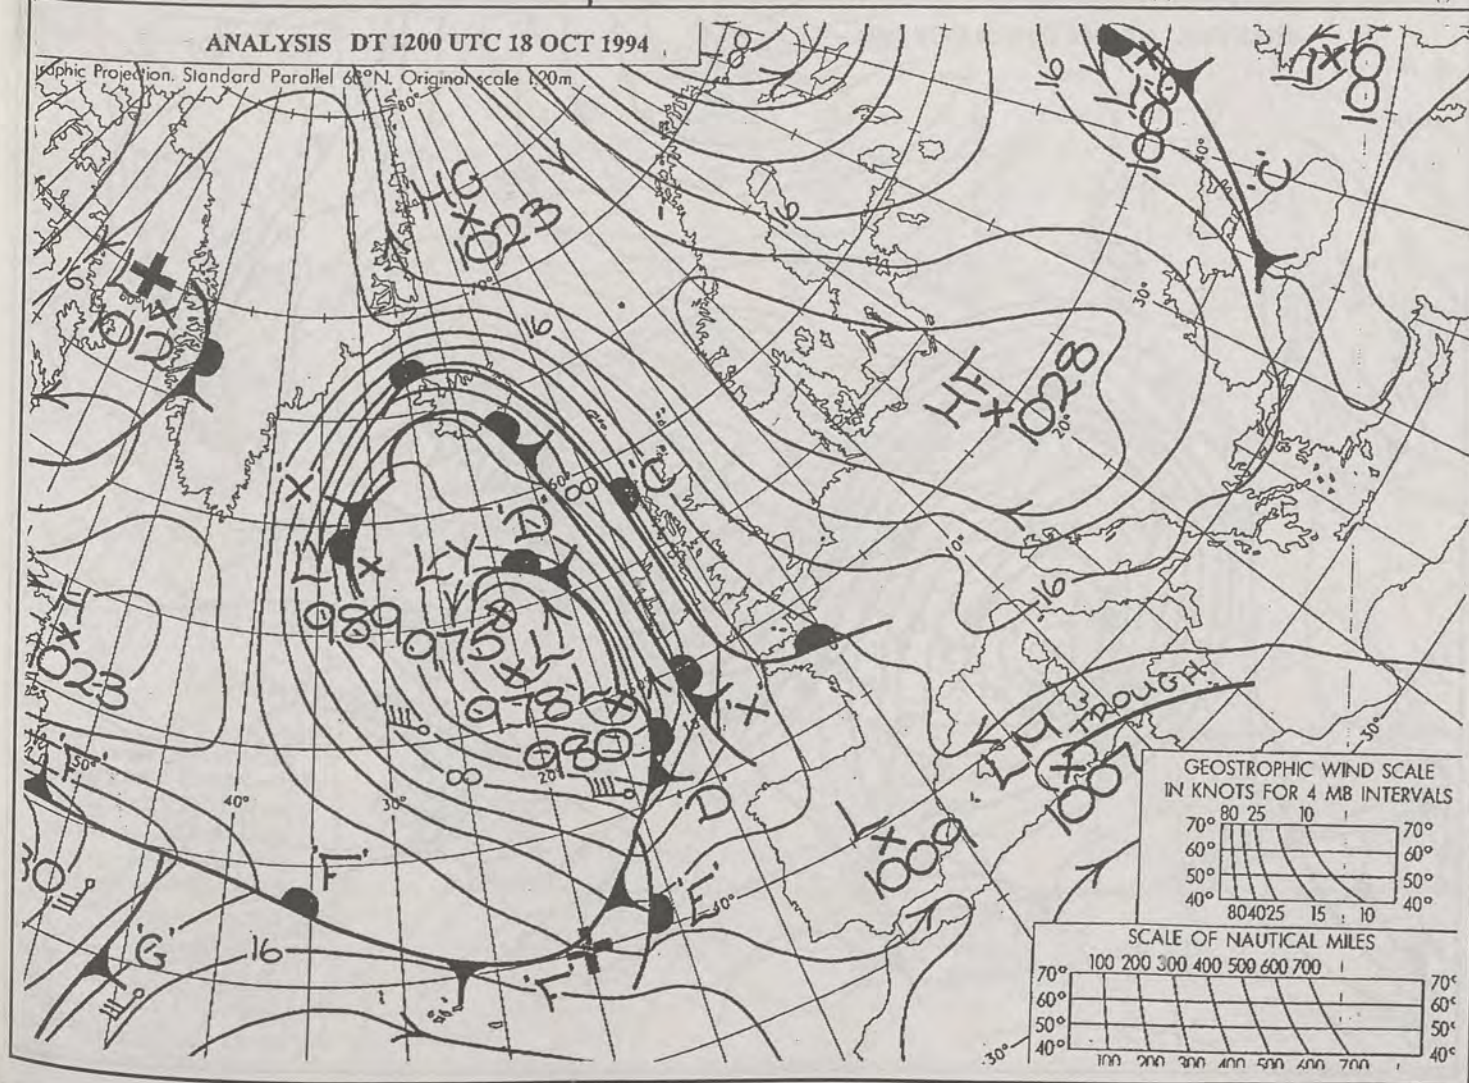 ANALYSIS DT 1200 UTC 18 OCT 1994
raphic Projection. Standard Parallel 60°N. Original scale 1:20m
80°
16
L
1008
L
1008
40°
'C'
HG
1023
6
70°
L
1012
16
30°
HF
1028
20°
'X'
'C'
60°
'D'
L
989
LY
975
L
978
980
10°
16
H
1023
'X'
TROUGH
LM
1007
'D'
L
1009
'F'
50°
40°
30°
20°
'F'
'E'
40°
'G'
16
30
30°
GEOSTROPHIC WIND SCALE
IN KNOTS FOR 4 MB INTERVALS
80 25 10
70° 70°
60° 60°
50° 50°
40° 40°
80 40 25 15 10
SCALE OF NAUTICAL MILES
100 200 300 400 500 600 700
70° 70°
60° 60°
50° 50°
40° 40°
100 200 300 400 500 600 700
30°